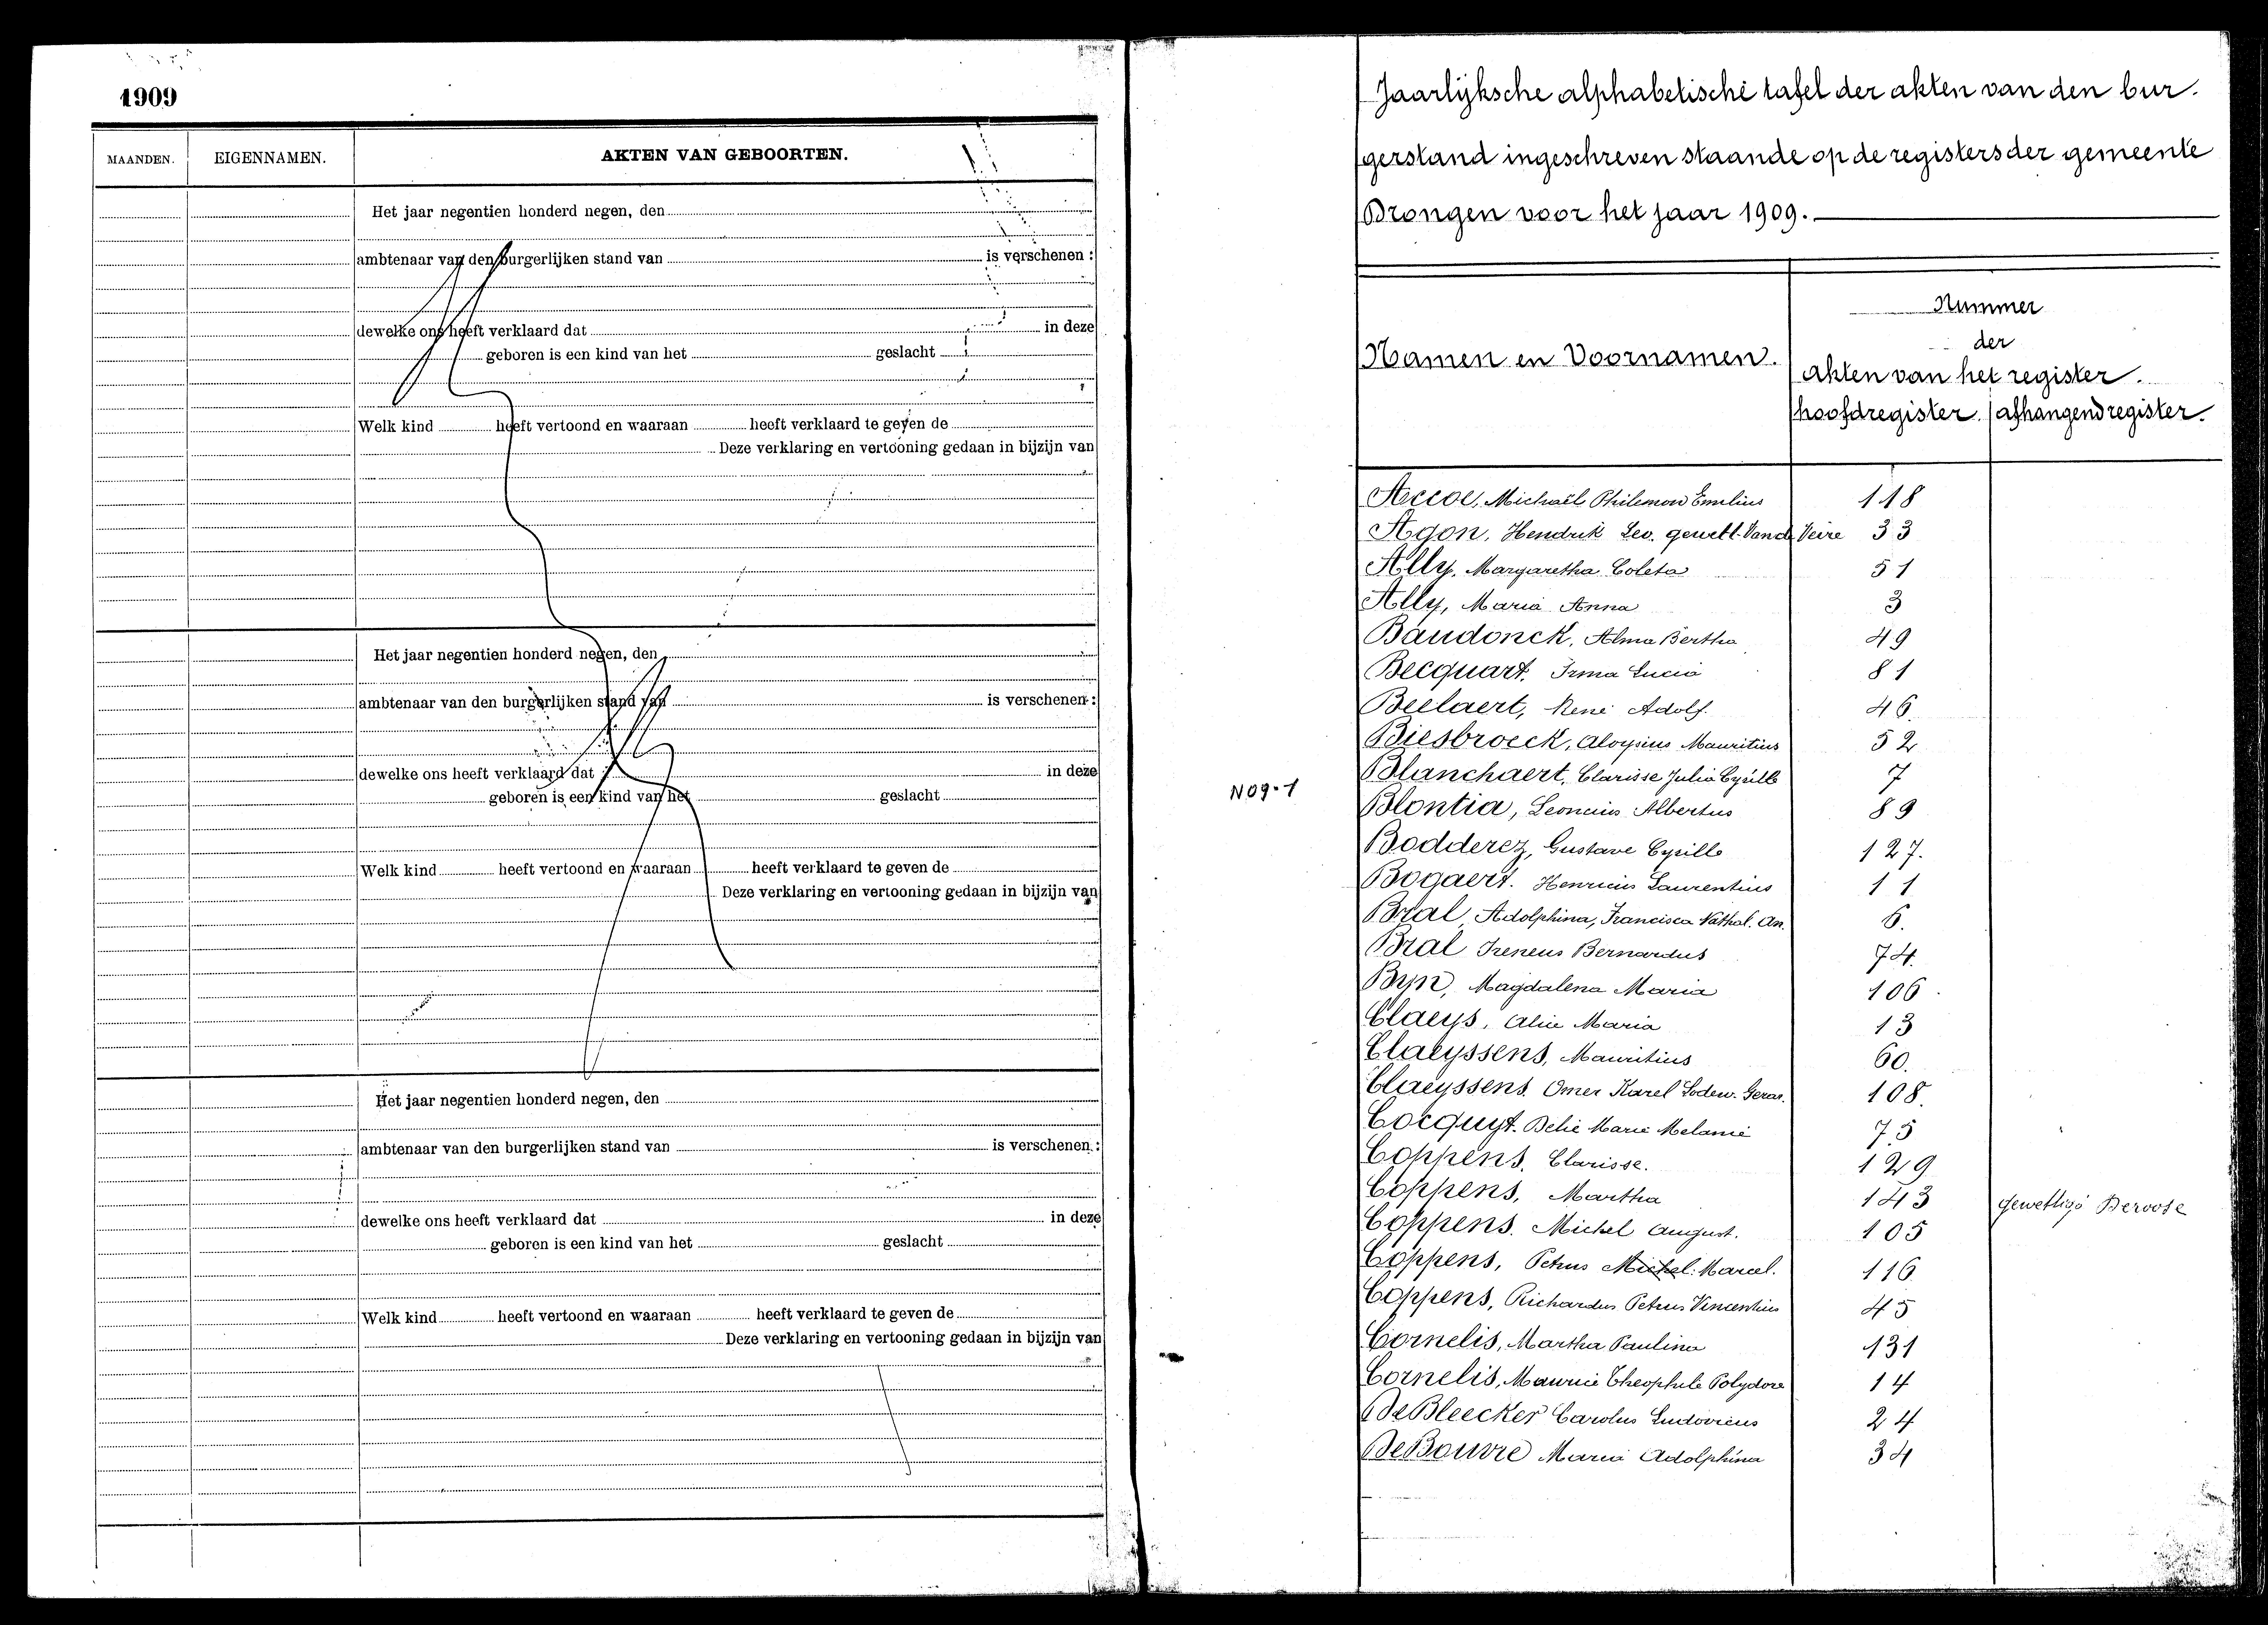 1909
MAANDEN. EIGENNAMEN. AKTEN VAN GEBOORTEN.
Het jaar negentien honderd negen, den
ambtenaar van den burgerlijken stand van is verschenen :
dewelke ons heeft verklaard dat in deze
geboren is een kind van het geslacht
Welk kind heeft vertoond en waaraan heeft verklaard te geven de
Deze verklaring en vertooning gedaan in bijzijn van
Het jaar negentien honderd negen, den
ambtenaar van den burgerlijken stand van is verschenen :
dewelke ons heeft verklaard dat in deze
geboren is een kind van het geslacht
Welk kind heeft vertoond en waaraan heeft verklaard te geven de
Deze verklaring en vertooning gedaan in bijzijn van
Het jaar negentien honderd negen, den
ambtenaar van den burgerlijken stand van is verschenen :
dewelke ons heeft verklaard dat in deze
geboren is een kind van het geslacht
Welk kind heeft vertoond en waaraan heeft verklaard te geven de
Deze verklaring en vertooning gedaan in bijzijn van
Jaarlijksche alphabetische tafel der akten van den bur-
gerstand ingeschreven staande op de registers der gemeente
Drongen voor het jaar 1909.
Namen en Voornamen.
Nummer
der
akten van het register.
hoofdregister. afhangend register.
Accoe, Michaël Philemon Emilius 118
Agon, Hendrik Lev. gewett. Vand Veire 33
Ally, Margaretha Coleta 51
Ally, Maria Anna 3
Baudonck, Alma Bertha 49
Becquart, Irma Lucia 81
Beelaert, René Adolf. 46
Biesbroeck, Aloysius Mauritius 52
Blanchaert, Clarisse Julia Cyrille 7
N09-1
Blontia, Leoncius Albertus 89
Bodderez, Gustave Cyrille 127.
Bogaert. Henricus Laurentius 11
Bral, Adolphina, Francisca Nathal. An. 6.
Bral Ireneus Bernardus 74.
Byn, Magdalena Maria 106
Claeys, Alice Maria 13
Claeyssens, Mauritius 60.
Claeyssens. Omer Karel Lodew. Geras. 108.
Cocquyt. Delie Marie Melanie 75
Coppens, Clarisse. 129
Coppens, Martha 143 gewettigd Deroose
Coppens. Michel August. 105
Coppens, Petrus Michel. Marcel. 116
Coppens, Richardus Petrus Vincentius 45
Cornelis, Martha Paulina 131
Cornelis, Maurice Theophile Polydore 14
De Bleecker Carolus Ludovicus 24
De Bouvre Maria Adolphina 34